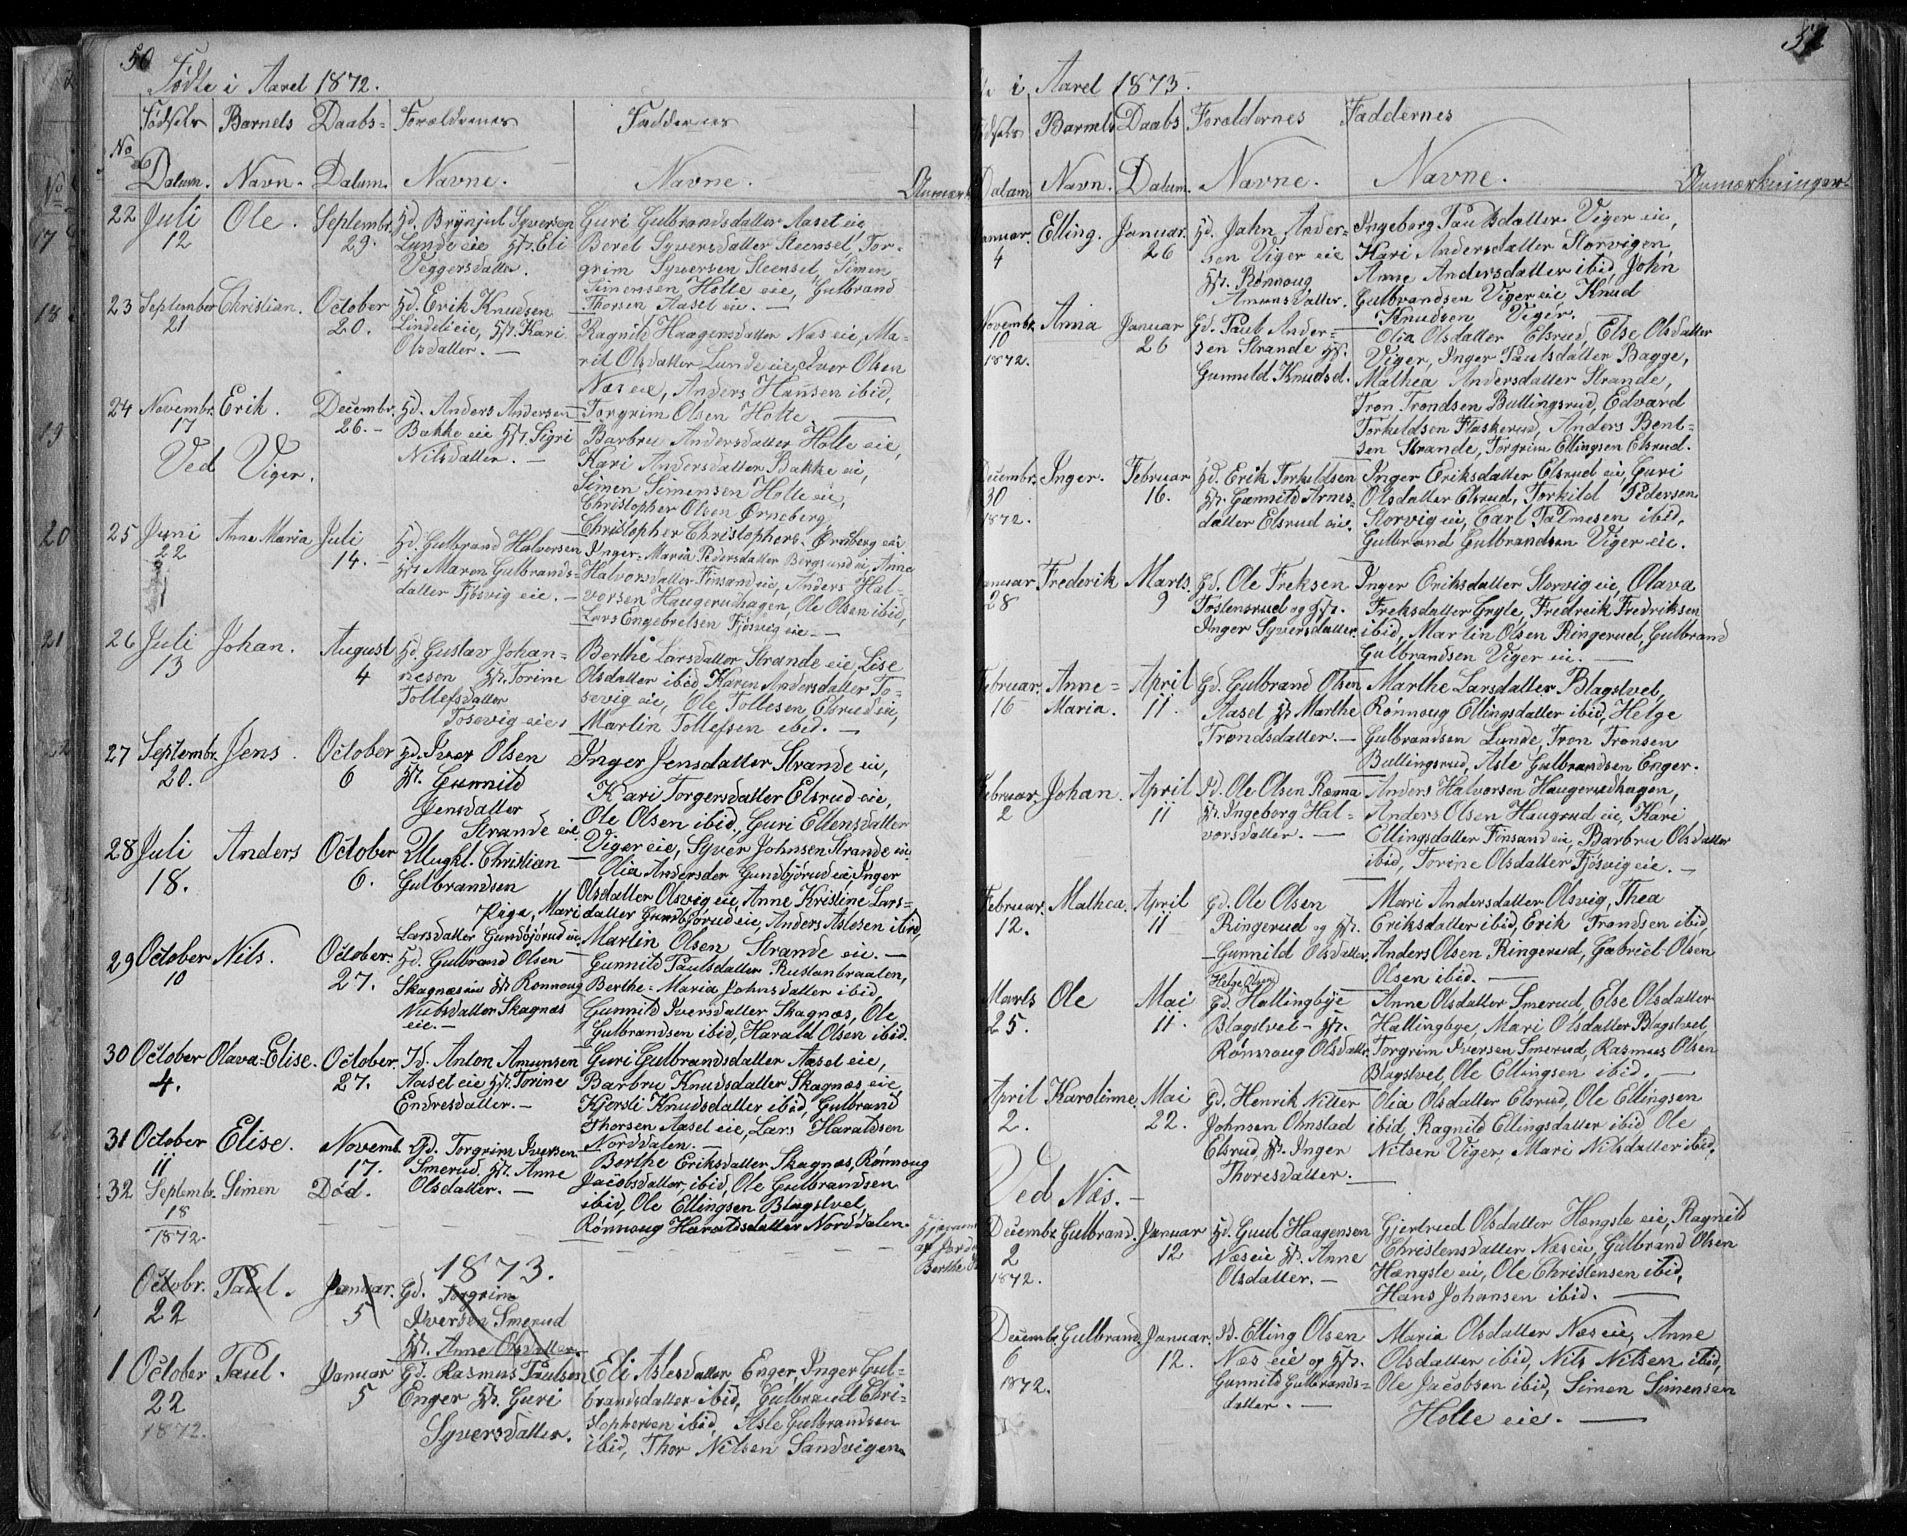 50
Fødte i Aaret 1872.
No Fødsels Datum. Barnets Navn. Daabs= Datum. Forældrenes Navne. Faddernes Navne.
22 Juli 12 Ole. Septembr. 29. Hd. Brynjul Syversen Guri Gulbrandsdatter Aaset eie
Lunde eie Hst. Eli Beret Syversdatter Steenset, Tor=
Veggersdatter. grim Syversen Steenset, Simen
Simensen Holte eie, Gulbrand
Thorsen Aaset eie. —
23 September 21 Christian. October 20. Hd. Erik Knudsen
Lindeli eie, Hst. Kari Ragnild Haagensdatter Næs eie, Ma=
Olsdatter. — rit Olsdatter Lunde eie, Iver Olsen
Næs eie, Anders Hansen ibid,
Torgrim Olsen Holte. —
24 Novembr. 17 Erik. Decembr. 26. — Hd. Anders Andersen
Bakke eie Hst. Sigri Barbru Andersdatter Holte eie,
Nilsdatter. — Kari Andersdatter Bakke eie,
Simen Simensen Holte eie,
Christopher Olsen Ørneberg,
Christopher Christophers. Ørneberg eie
Ved Viger.
25 Juni 22 Anne Maria Juli 14. — Hd. Gulbrand Halvorsen Inger=Maria Pedersdatter Bergsund eie, Anne
Hst. Maren Gulbrands= Halvorsdatter Finsand eie, Anders Hal=
datter Fjøsvig eie. — vorsen Haugerudhagen, Ole Olsen ibid,
Lars Engebretsen Fjøsvig eie. —
26 Juli 13 Johan. August 4 Hd. Gustav Johan= Berthe Larsdatter Strande eie, Lise
nesen Hst. Torine Olsdatter ibid Karen Andersdatter To=
Tollefsdatter sevig eie, Ole Tollesen Elsrud eie,
Tosevig eie. Martin Tollefsen ibid. —
27 Septembr. 20. Jens. October 6 Hd. Iver Olsen Inger Jensdatter Strande eie,
Hst. Gunnild Kari Torgersdatter Elsrud eie,
Jensdatter Ole Olsen ibid, Guri Ellensdatter
Strande eie Viger eie, Syver Johnsen Strande eie
28 Juli 18. Anders October 6. Ungkl. Christian Olia Andersdr Gundbjørud eie Inger
Gulbrandsen Olsdatter Olsvig eie, Anne Kristine Lars=
Piga, Mari datter Gundbjørud eie, Anders Aslesen ibid,
Larsdatter Gundbjørud eie Martin Olsen Strande eie. —
29 October 10 Nils. October. 27. Hd. Gulbrand Olsen Gunnild Paulsdatter Rustanbraaten,
Skagnæs eie Hst. Rønnoug Berthe=Maria Johnsdatter ibid
Nubsdatter Skagnæs Gunnild Iversdatter Skagnæs, Ole
eie. — Gulbrandsen ibid, Harald Olsen ibid.
30 October 4. Olava=Elise. October. 27. Id. Anton Amunsen Guri Gulbrandsdatter Aaset eie,
Aaset eie Hst. Torine Barbru Knudsdatter Skagnæs eie,
Endresdatter. — Kjersti Knudsdatter ibid, Gulbrand
Thorsen Aaset eie, Lars Haraldsen
Norddalen. —
31 October 11 Elise. Novemb. 17. Gd. Torgrim Iversen
Smerud, Hst. Anne Berthe Eriksdatter Skagnæs, Rønnoug
Olsdatter. — Jacobsdatter ibid, Ole Gulbrandsen
ibid, Ole Ellingsen Blagstvet,
Rønnoug Haraldsdatter Norddalen.
32 Septembr. 18 1872. Simen Død.
1873.
Octobr. 22 Paul. Januar. 5 Gd. Torgrim
Iversen Smerud
Hst. Anne Olsdatter.
1 October 22 1872. Paul. Januar 5 Gd. Rasmus Paulsen Eli Aslesdatter Enger, Inger Gul=
Enger Hst. Guri brandsdatter ibid, Gulbrand Chri=
Syversdatter. stophersen ibid, Asle Gulbrandsen
ibid, Thor Nilsen Sandvigen
i Aaret 1873.
Barnets Navn. Daabs Datum. Forældernes Navne. Faddernes Navne. Anmærkninger.
Januar. 4 Elling. Januar. 26 Hd. John Ander= Ingeborg Paulsdatter Viger eie,
sen Viger eie Kari Andersdatter Storvigen,
Hst. Rønnoug Anne Andersdatter ibid, John
Amunsdatter. Gulbrandsen Viger eie Knud
Knudsen Viger. —
Novembr. 10 1872. Anna Januar 26 Gd. Paul Ander= Olia Olsdatter Elsrud, Else Olsdatter
sen Strande Hst. Viger, Inger Paulsdatter Bagge,
Gunnild Knudsd. Mathea Andersdatter Strande,
Tron Trondsen Bullingsrud, Edvard
Torkildsen Flaskerud, Anders Bent=
sen Strande, Torgrim Ellingsen Elsrud.
Decembr. 30 1872. Inger. Februar 16. Hd. Erik Torkildsen Inger Eriksdatter Elsrud eie, Guri
Hst. Gunnild Arnes= Olsdatter Elsrud, Torkild Pedersen
datter Elsrud eie. Storvig eie, Carl Palmesen ibid,
Gulbrand Gulbrandsen Viger eie.
Januar 28 Frederik Marts. 9 Gd. Ole Freksen Inger Eriksdatter Storvig eie, Olava
Tostensrud og Hst. Freksdatter Gryte, Fredreik Fredriksen
Inger Syversdatter. ibid, Martin Olsen Ringerud, Gulbrand
Gulbrandsen Viger eie. —
Februar. 16 Anne=Maria. April 11. Gd. Gulbrand Olsen Marthe Larsdatter Blagstvet,
Aaset Hst. Marthe Rønnoug Ellingsdatter ibid, Helge
Trondsdatter. — Gulbrandsen Lunde, Tron Tronsen
Bullingsrud, Asle Gulbrandsen Enger.
Februar. 2 Johan. April 11 Id. Ole Olsen Ræma Anders Halvorsen Haugerudhagen,
Hst. Ingeborg Hal= Anders Olsen Haugrud eie, Kari
vorsdatter. — Ellingsdatter Finsand eie, Barbru Olsdatter
ibid, Torine Olsdatter Fjøsvig eie. —
Februar. 12. Mathea. April 11 Gd. Ole Olsen Mari Andersdatter Olsvig, Thea
Ringerud og Hst. Eriksdatter ibid, Erik Trondsen ibid,
Gunnild Olsdatter. Anders Olsen Ringerud, Gabriel Olsen
Olsen ibid. —
Marts 25. Ole Mai 11. Helge Olsen
Gd. Hallingbye Anne Olsdatter Smerud, Else Olsdatter
Blagstvet — Hst. Hallingbye, Mari Olsdatter Blagstvet,
Rønnoug Olsdatter. Torgrim Iversen Smerud, Rasmus Olsen
Blagstvet, Ole Ellingsen ibid. —
April 2. Karolinne. Mai 22. Gd. Henrik Nitter Olia Olsdatter Elsrud, Ole Ellingsen
Johnsen Omstad ibid, Ragnild Ellingsdatter ibid Ole
Elsrud, Hst. Inger Nilsen Viger, Mari Nilsdatter ibid.
Thoresdatter. —
Ved Næs. —
Decembr. 2 1872. Gulbrand. Januar 12. Hd. Guul Haagensen Gjertrud Olsdatter Hængsle eie, Ragnild
Næs eie Hst. Anne Christensdatter Næs eie, Gulbrand Olsen
Olsdatter. — Hængsle eie, Ole Christensen ibid,
Hans Johansen ibid. —
Decembr. 6 1872. Gulbrand. Januar. 12. Id. Elling Olsen Maria Olsdatter Næs eie, Anne
Næs eie og Hst. Olsdatter ibid, Nils Nilsen ibid,
Gunnild Gulbrands= Ole Jacobsen ibid, Simen Simensen
datter. — Holte eie. —